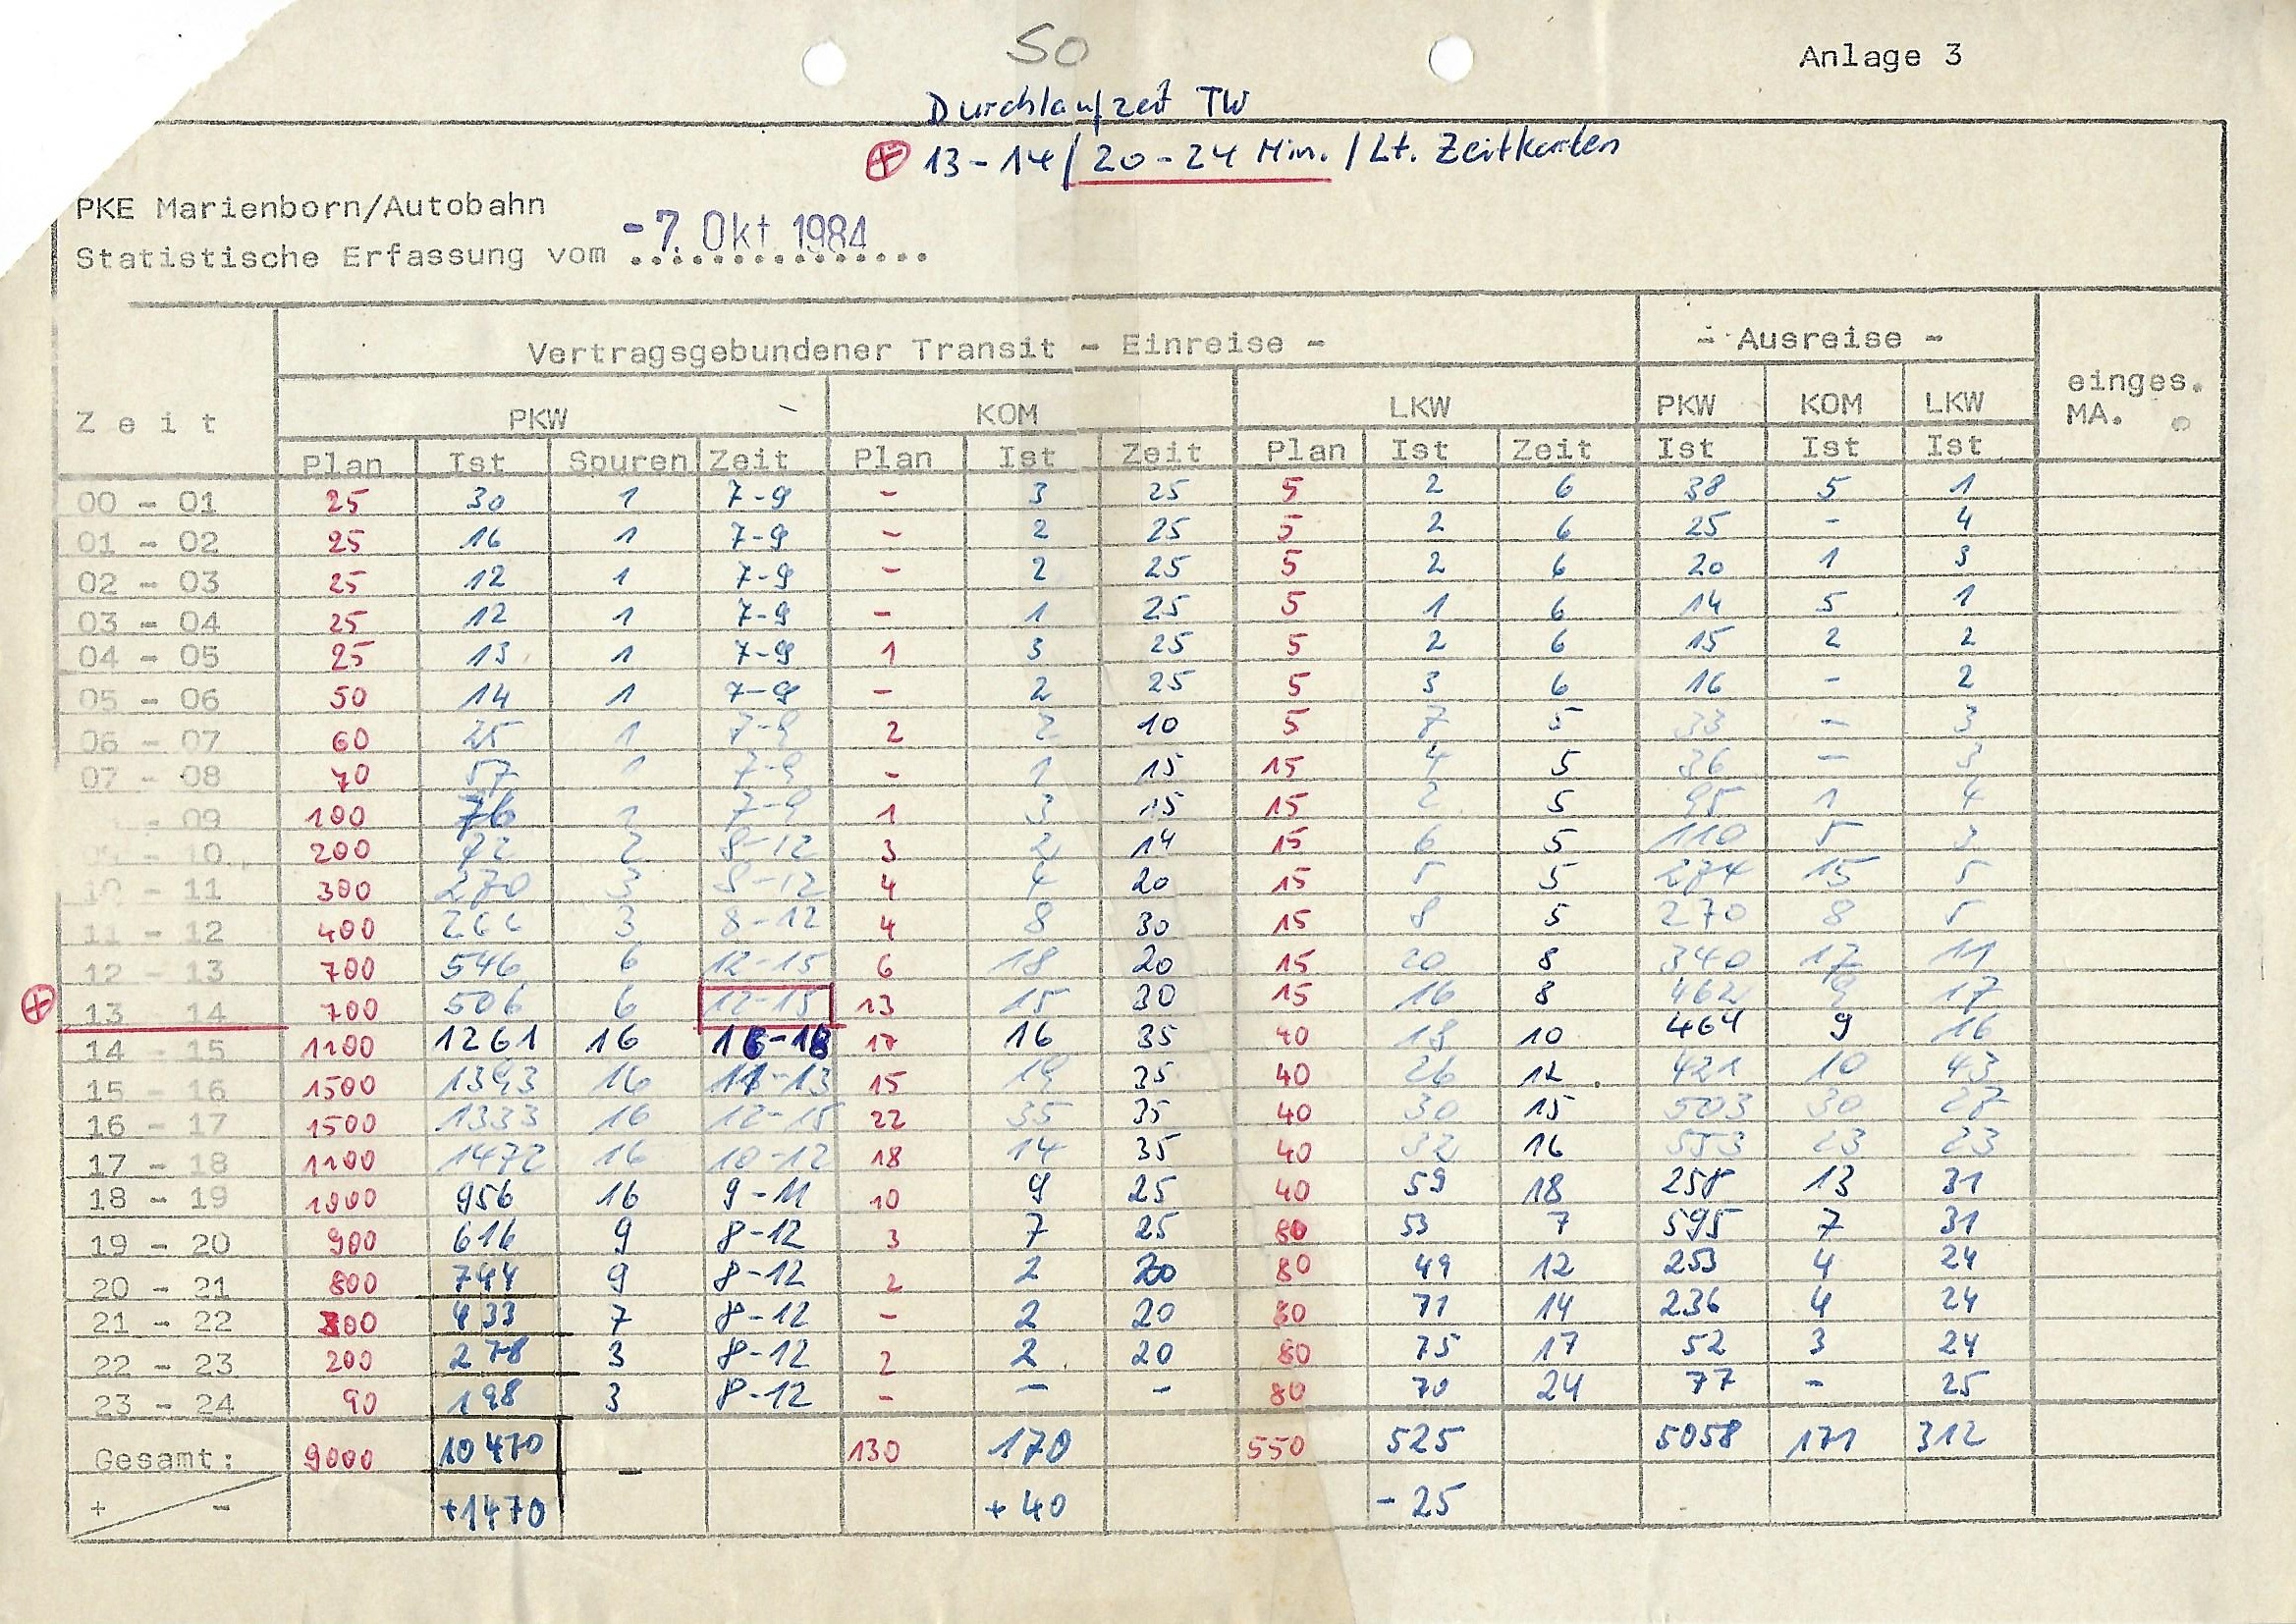 SO
Anlage 3
Durchlaufzeit TW
⊕ 13-14 / 20-24 Min. / Lt. Zeitkarten
PKE Marienborn/Autobahn
Statistische Erfassung vom -7. Okt. 1984
Vertragsgebundener Transit - Einreise - - Ausreise -
Zeit PKW KOM LKW PKW KOM LKW einges. MA.
Plan Ist Spuren Zeit Plan Ist Zeit Plan Ist Zeit Ist Ist Ist
00 - 01 25 30 1 7-9 - 3 25 5 2 6 38 5 1
01 - 02 25 16 1 7-9 - 2 25 5 2 6 25 - 4
02 - 03 25 12 1 7-9 - 2 25 5 2 6 20 1 3
03 - 04 25 12 1 7-9 - 1 25 5 1 6 14 5 1
04 - 05 25 13 1 7-9 1 3 25 5 2 6 15 2 2
05 - 06 50 14 1 7-9 - 2 25 5 3 6 16 - 2
06 - 07 60 25 1 7-9 2 2 10 5 7 5 33 - 3
07 - 08 70 57 1 7-9 - 1 15 15 4 5 36 - 3
- 09 100 76 1 7-9 1 3 15 15 2 5 95 1 4
- 10 200 2 8-12 3 2 14 15 6 5 110 5 3
10 - 11 300 270 3 8-12 4 4 20 15 5 5 274 15 5
11 - 12 400 266 3 8-12 4 8 30 15 8 5 270 8 5
12 - 13 700 546 6 12-15 6 18 20 15 20 8 340 17 11
⊕ 13 - 14 700 506 6 12-15 13 15 30 15 16 8 462 9 17
14 - 15 1100 1261 16 16-18 17 16 35 40 10 464 9 16
15 - 16 1500 1393 16 11-13 15 19 35 40 26 12 421 10 43
16 - 17 1500 1333 16 12-15 22 35 35 40 30 15 503 30 27
17 - 18 1100 1472 16 10-12 18 14 35 40 32 16 553 23 23
18 - 19 1000 956 16 9-11 10 9 25 40 59 18 258 13 31
19 - 20 900 616 9 8-12 3 7 25 80 53 7 595 7 31
20 - 21 800 744 9 8-12 2 2 20 80 49 12 253 4 24
21 - 22 300 433 7 8-12 - 2 20 80 71 14 236 4 24
22 - 23 200 278 3 8-12 2 2 20 80 75 17 52 3 24
23 - 24 90 198 3 8-12 - - - 80 70 24 77 - 25
Gesamt: 9000 10470 - 130 170 550 525 5058 171 312
+ / - +1470 + 40 - 25